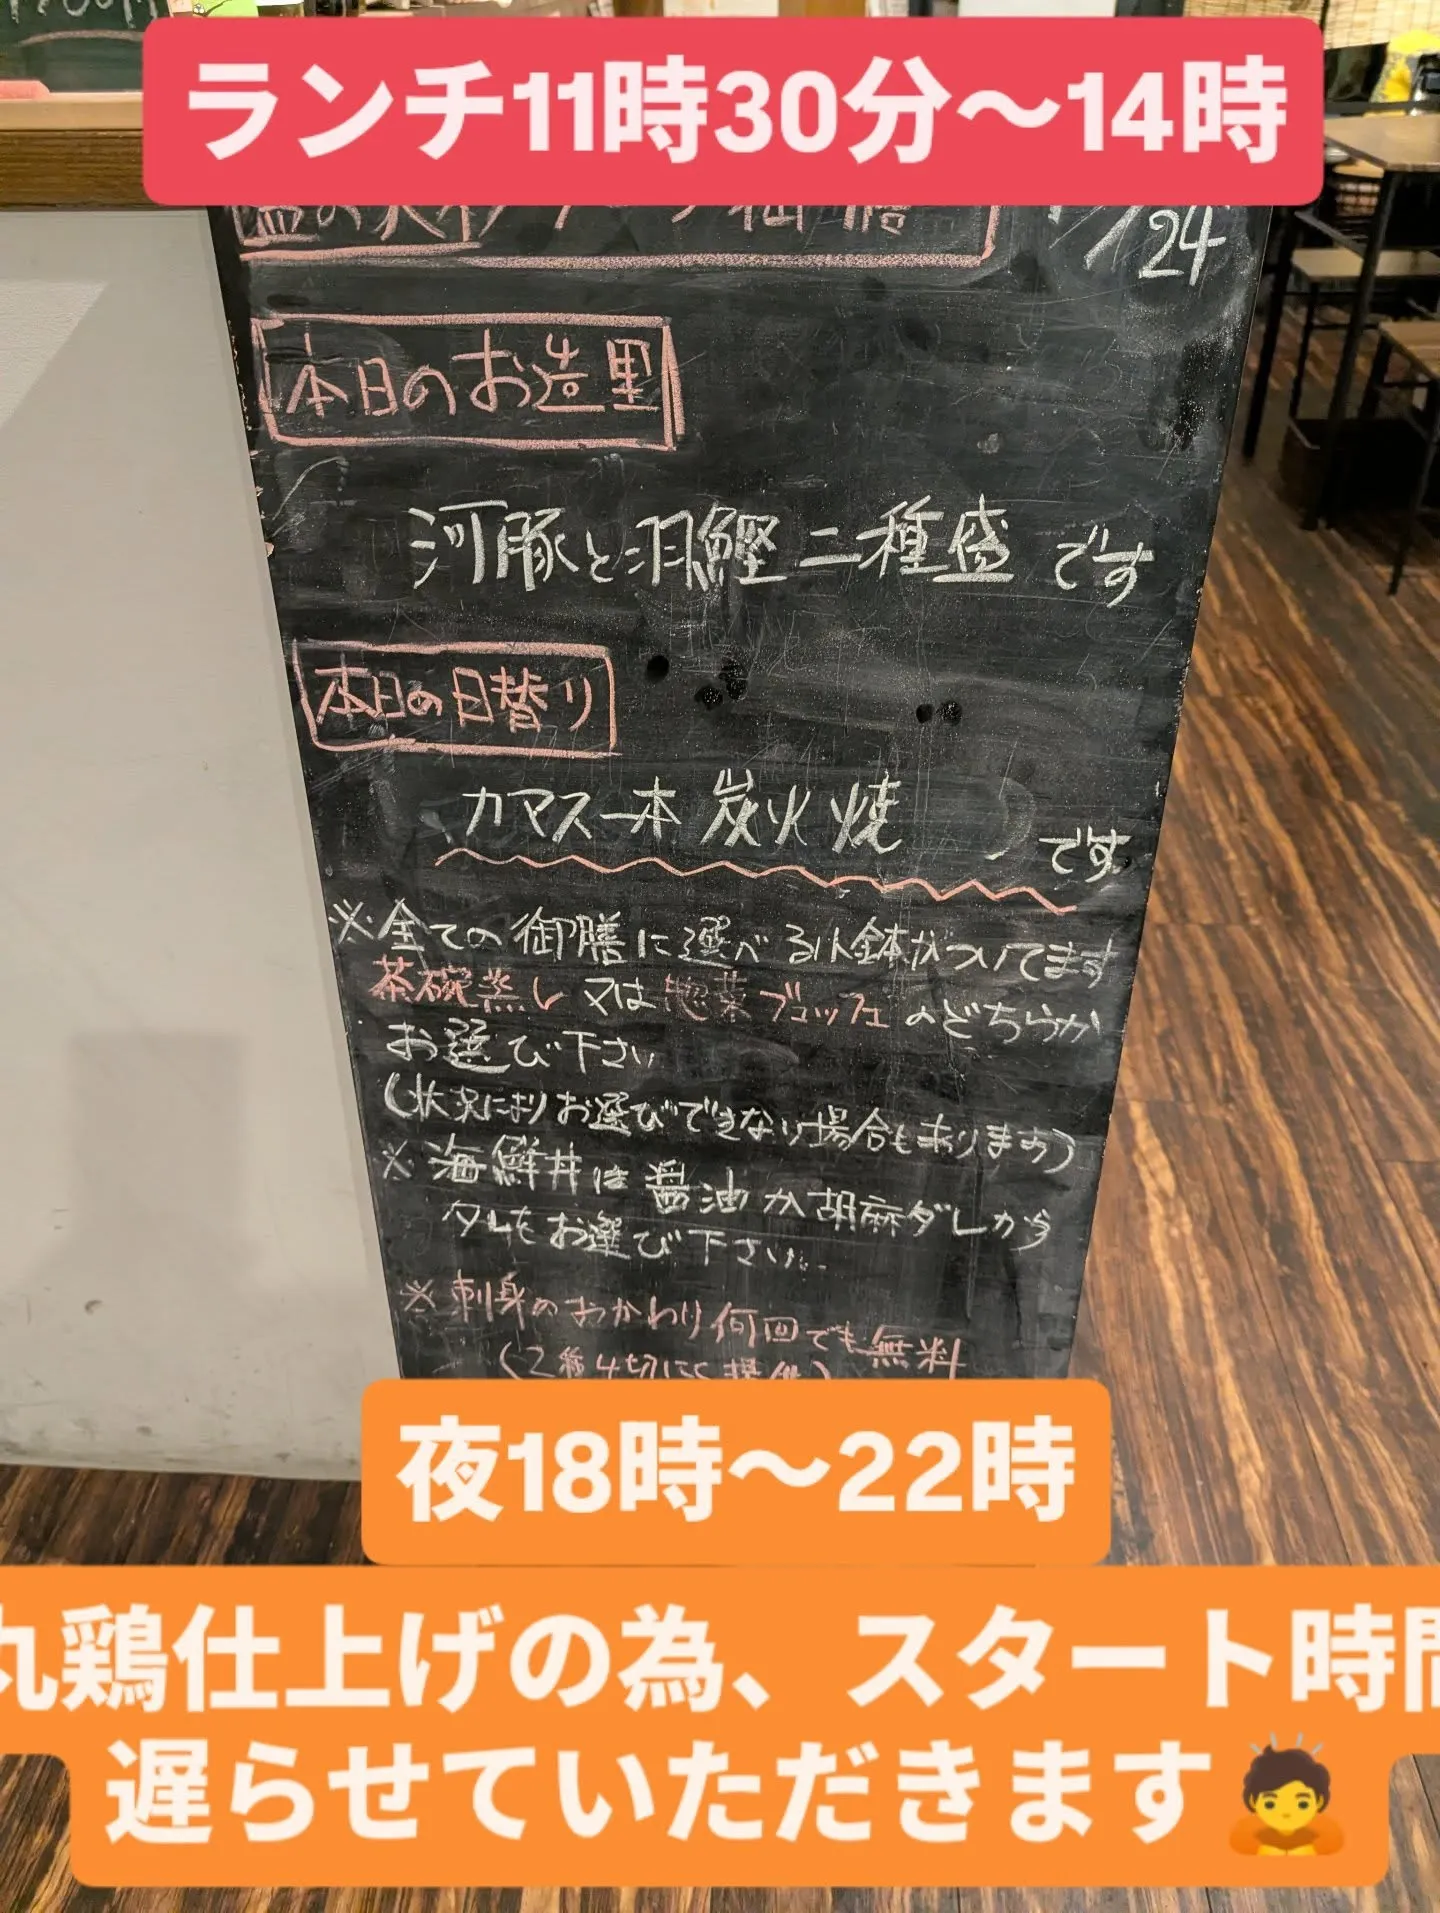 ランチ11時30分〜14時
24
本日のお造里
河豚と羽鰹二種盛です
本日の日替り
カマス一本炭火焼です
※全ての御膳に選べる小鉢がついてます
茶碗蒸し又は惣菜ブュッフェのどちらか
お選び下さい
(状況によりお選びできない場合も有ります)
※海鮮丼は醤油か胡麻ダレから
タレをお選び下さい
※刺身のおかわり何回でも無料
夜18時〜22時
丸鶏仕上げの為、スタート時間
遅らせていただきます🙇